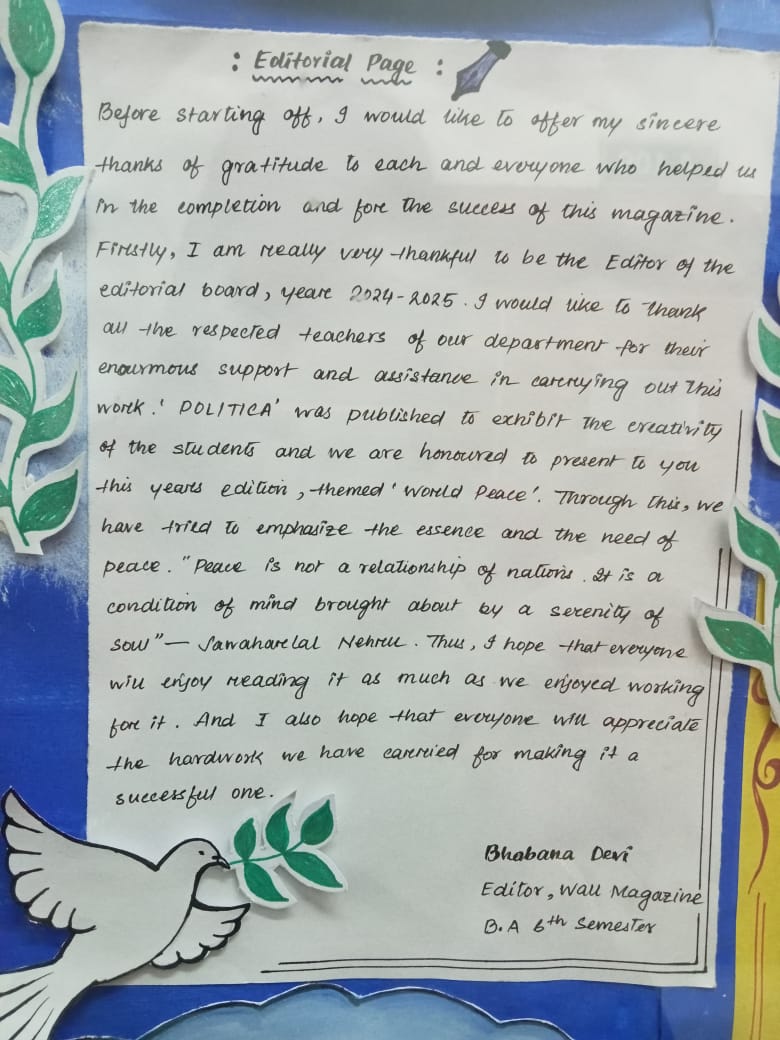 : Editorial Page :
Before starting off, I would like to offer my sincere
thanks of gratitude to each and everyone who helped us
in the completion and for the success of this magazine.
Firstly, I am really very thankful to be the Editor of the
editorial board, year 2024-2025. I would like to thank
all the respected teachers of our department for their
enourmous support and assistance in carrying out this
work. 'POLITICA' was published to exhibit the creativity
of the students and we are honoured to present to you
this years edition, themed 'World Peace'. Through this, we
have tried to emphasize the essence and the need of
peace. "Peace is not a relationship of nations. It is a
condition of mind brought about by a serenity of
soul" — Jawaharlal Nehru. Thus, I hope that everyone
will enjoy reading it as much as we enjoyed working
for it. And I also hope that everyone will appreciate
the hardwork we have carried for making it a
successful one.
Bhabana Devi
Editor, Wall Magazine
B.A 6th Semester